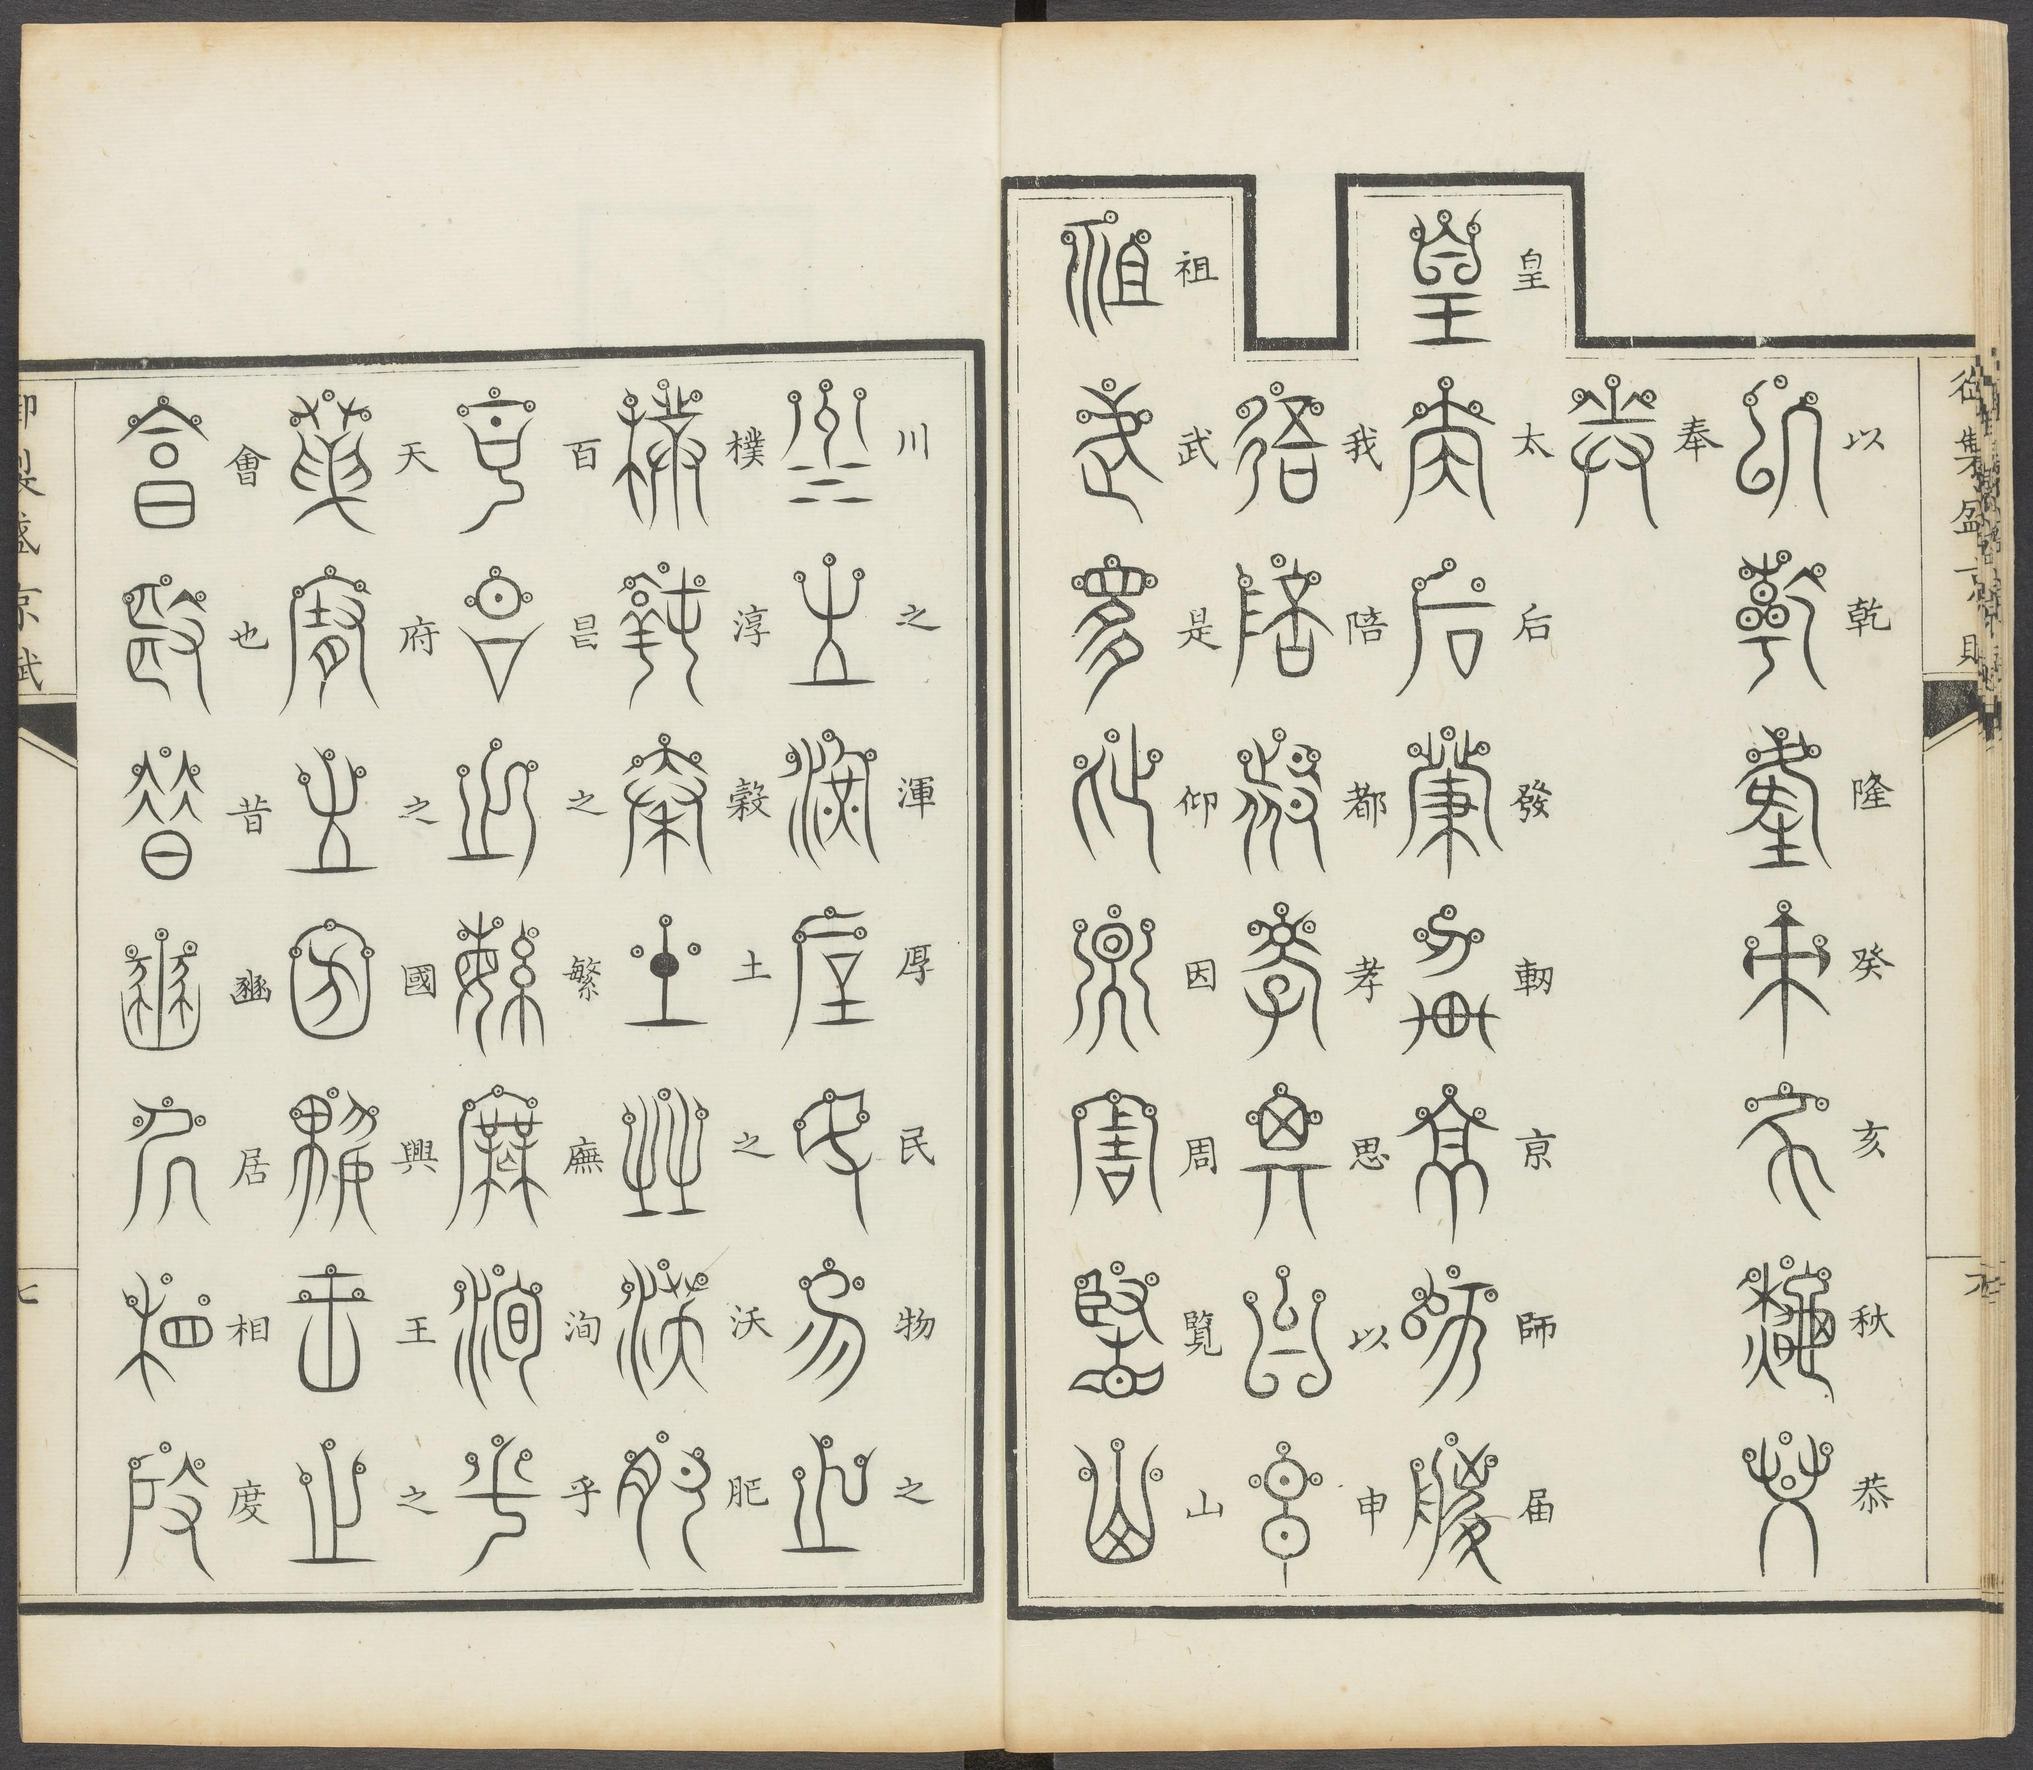 以乾隆癸亥秋恭
奉
皇太后發軔京師届
我陪都孝思以申
祖武是仰因周覽山
川之渾厚民物之
樸淳穀土之沃肥
百昌之繁廡洵乎
天府之國興王之
會也昔豳居相度
御製盛京賦
七